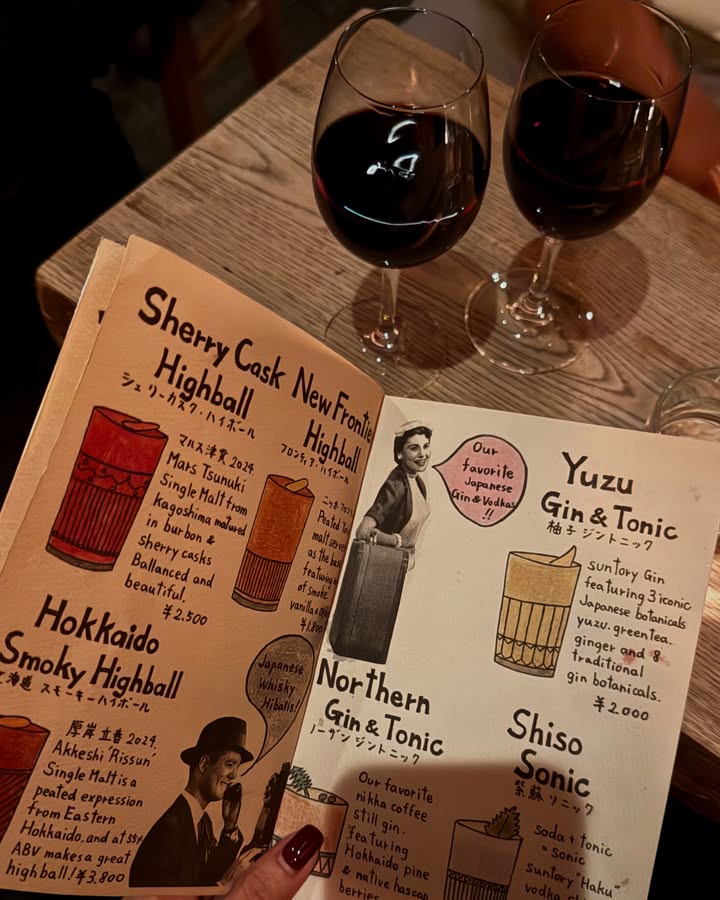 Sherry Cask
Highball
シェリーカスク・ハイボール
マルス津貫 2024.
Mars Tsunuki
Single Malt from
Kagoshima matured
in burbon &
sherry casks
Ballanced and
beautiful.
¥2.500
New Frontie
Highball
フロンティア・ハイボール
Peated
malt serve
as the ba
featuring
of smoke
vanilla &
¥1.80
Hokkaido
Smoky Highball
海道 スモーキーハイボール
厚岸 立春 2024.
Akkeshi 'Rissun'
Single Malt is a
peated expression
from Eastern
Hokkaido, and at 55%
ABV makes a great
highball! ¥3.800
Japanese
Whisky
Hiballs!
Our
favorite
Japanese
Gin & Vodkas
!!
Yuzu
Gin & Tonic
柚子 ジントニック
suntory Gin
featuring 3 iconic
Japanese botanicals
yuzu. green tea.
ginger and 8
traditional
gin botanicals.
¥2.000
Northern
Gin & Tonic
ノーザン ジントニック
Our favorite
nikka coffee
still gin.
featuring
Hokkaido pine
& native hascap
berries
Shiso
Sonic
紫蘇 ソニック
soda + tonic
= sonic
suntory "Haku"
vodka